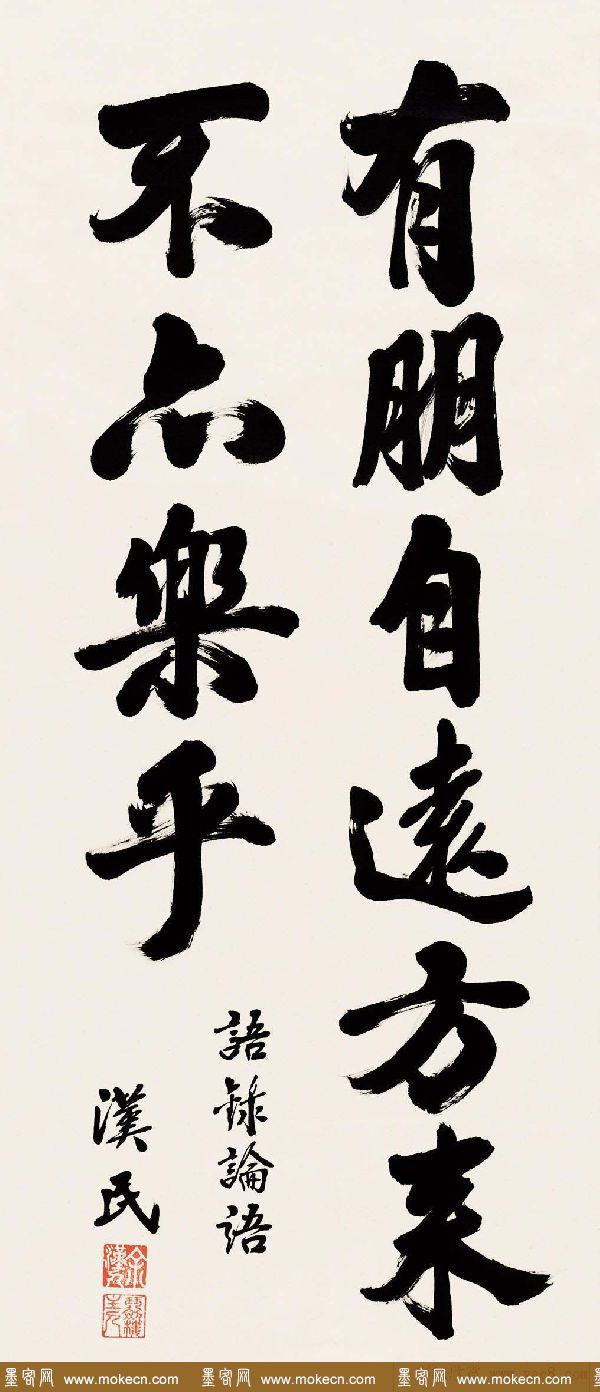 有朋自遠方来
不亦樂乎
語錄論語
漢民
墨客网 www.mokecn.com 墨客网 www.mokecn.com 墨客网 www.mokecn.com